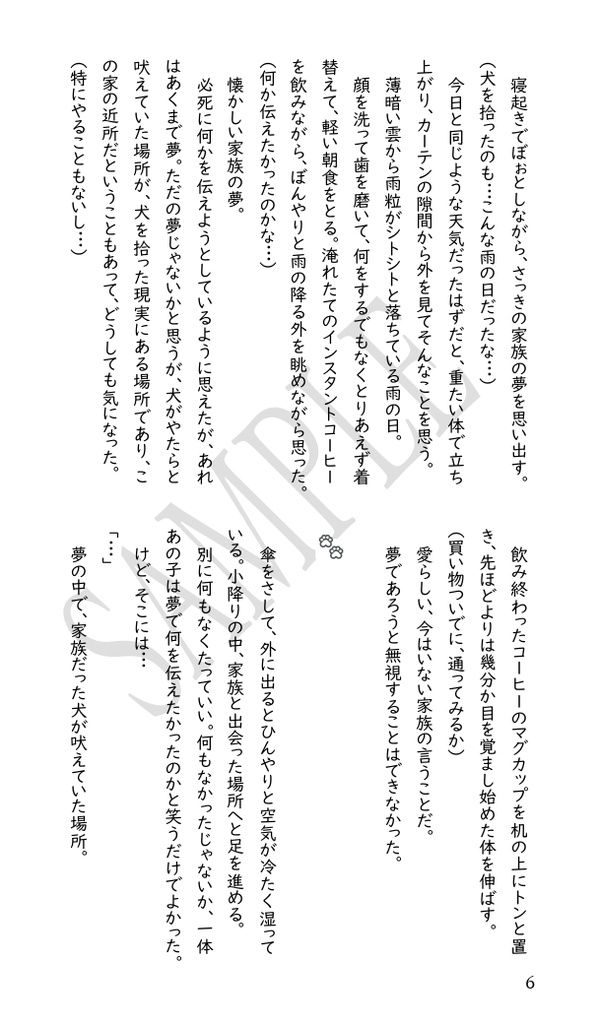 寝起きでぼぉとしながら、さっきの家族の夢を思い出す。
(犬を拾ったのも…こんな雨の日だったな…)
今日と同じような天気だったはずだと、重たい体で立ち
上がり、カーテンの隙間から外を見てそんなことを思う。
薄暗い雲から雨粒がシトシトと落ちている雨の日。
顔を洗って歯を磨いて、何をするでもなくとりあえず着
替えて、軽い朝食をとる。淹れたてのインスタントコーヒー
を飲みながら、ぼんやりと雨の降る外を眺めながら思った。
(何か伝えたかったのかな…)
懐かしい家族の夢。
必死に何かを伝えようとしているように思えたが、あれ
はあくまで夢。ただの夢じゃないかと思うが、犬がやたらと
吠えていた場所が、犬を拾った現実にある場所であり、こ
の家の近所だということもあって、どうしても気になった。
(特にやることもないし…)
飲み終わったコーヒーのマグカップを机の上にトンと置
き、先ほどよりは幾分か目を覚まし始めた体を伸ばす。
(買い物ついでに、通ってみるか)
愛らしい、今はいない家族の言うことだ。
夢であろうと無視することはできなかった。
傘をさして、外に出るとひんやりと空気が冷たく湿って
いる。小降りの中、家族と出会った場所へと足を進める。
別に何もなくたっていい。何もなかったじゃないか、一体
あの子は夢で何を伝えたかったのかと笑うだけでよかった。
けど、そこには…
「…」
夢の中で、家族だった犬が吠えていた場所。
6
SAMPLE